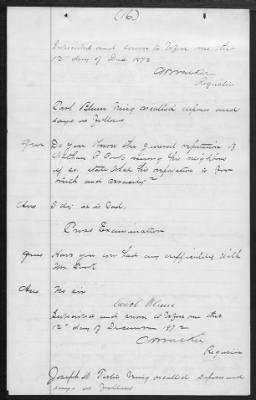 (16)
Subscribed and sworn to before me this
12" day of Dec 1872
Register
Carl Blum being recalled deposes and
says as follows
Ques Do you know the general reputation of
Nathan P. Cook among his neighbors
if so state what his reputation is for
truth and veracity?
Ans I do; it is bad.
Cross Examination
Ques Have you ever had any difficulties with
Mr Cook
Ans No sir
Carl Blum
Subscribed and sworn to before me this
12" day of December 1872
Register
Joseph being recalled deposes and
says as follows